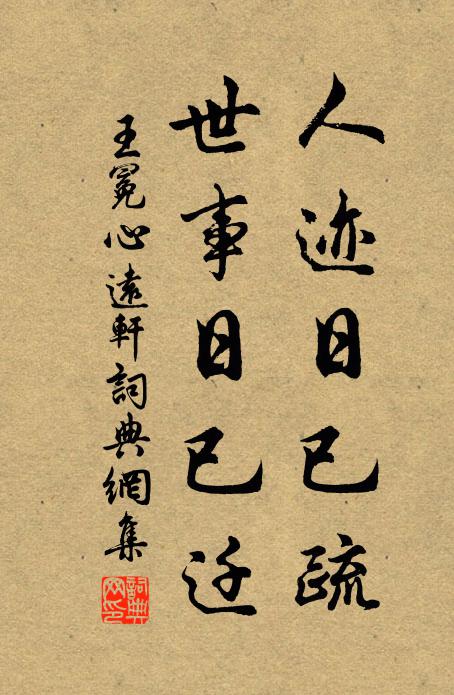 人迹日已疏
世事日已迁
王冕心遠軒詞典網集
詞典網印